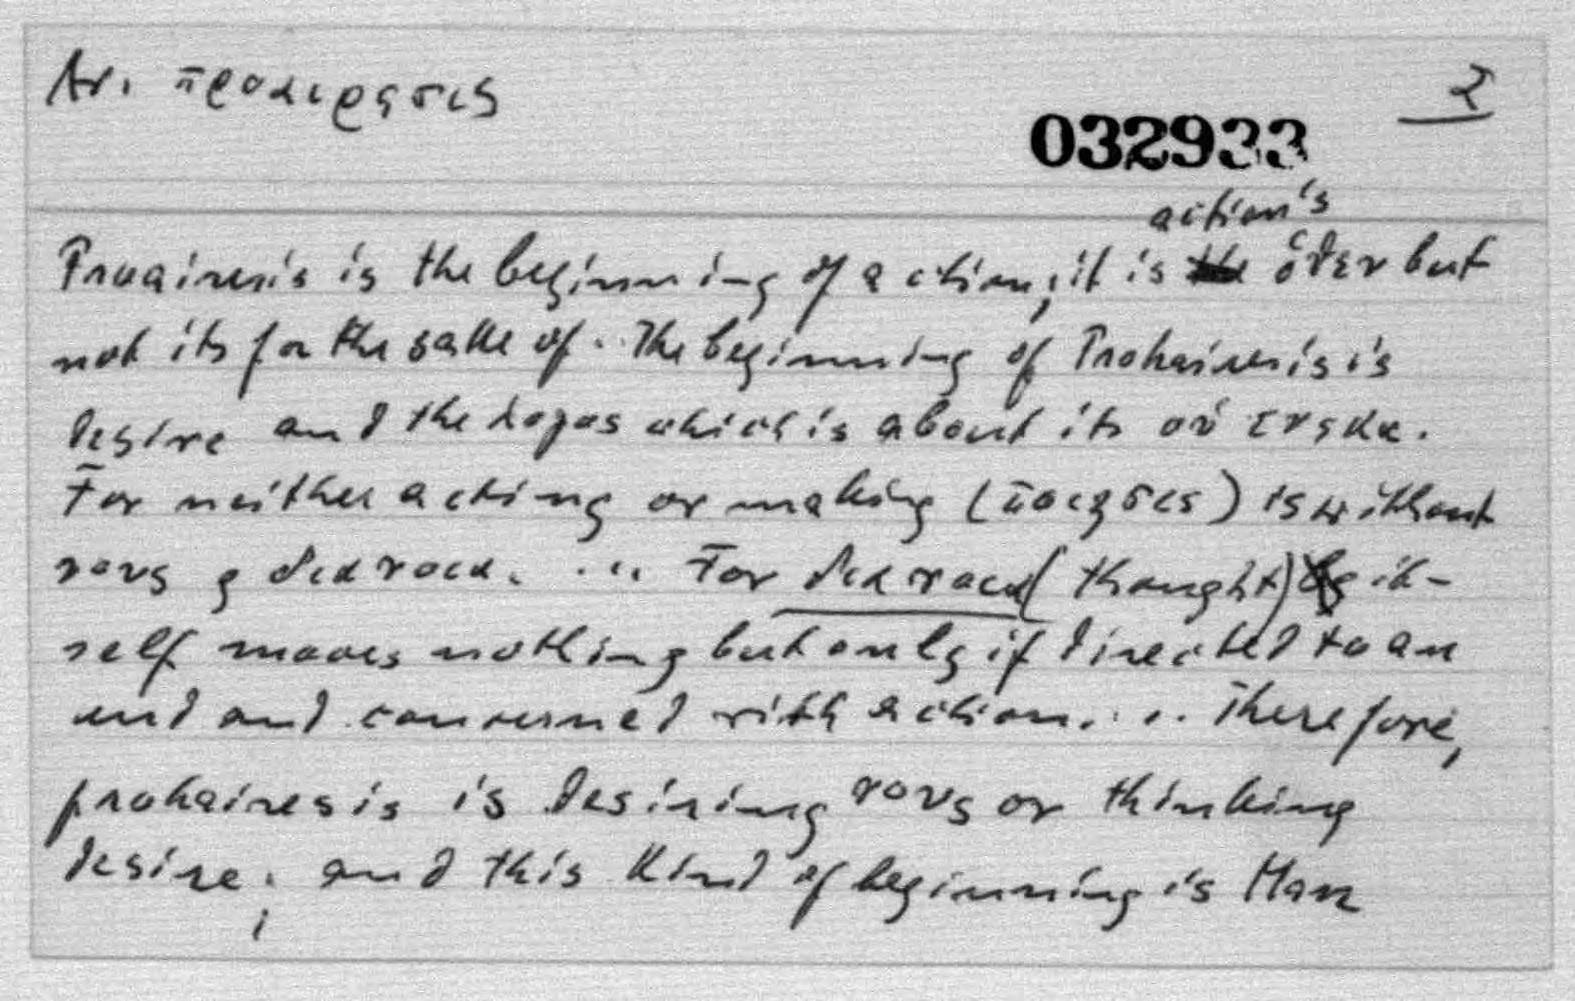 Ar. προαιρησις
2
032933
action's
Proairesis is the beginning of action; it is ὅθεν but
not its for the sake of. The beginning of Prohairesis is
desire and the logos which is about its οὑ ενεκα.
For neither acting or making (ποιησις) is without
νους η διανοια. ... For διανοια (thought) it-
self moves nothing but only if directed to an
end and concerned with action. ... Therefore,
prohairesis is desiring νους or thinking
desire; and this kind of beginning is Man